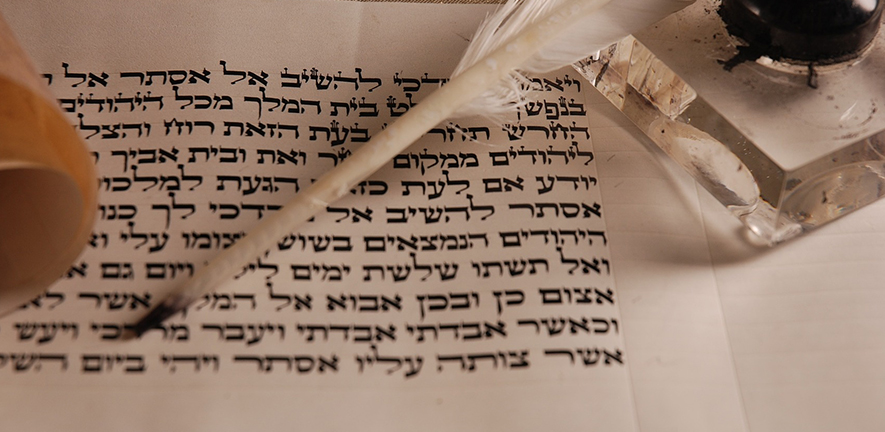 להשיב אל אסתר אל
בית המלך מכל היהודים
החרש בעת הזאת רוח
ליהודים ממקום ואת ובית אביך
יודע אם לעת הגעת
אסתר להשיב אל מרדכי לך
היהודים הנמצאים עלי
ואל תשתו שלשת ימים ויום גם
אצום כן ובכן אבוא אל המלך אשר
וכאשר אבדתי אבדתי ויעבר ויעש
אשר צותה עליו אסתר ויהי ביום